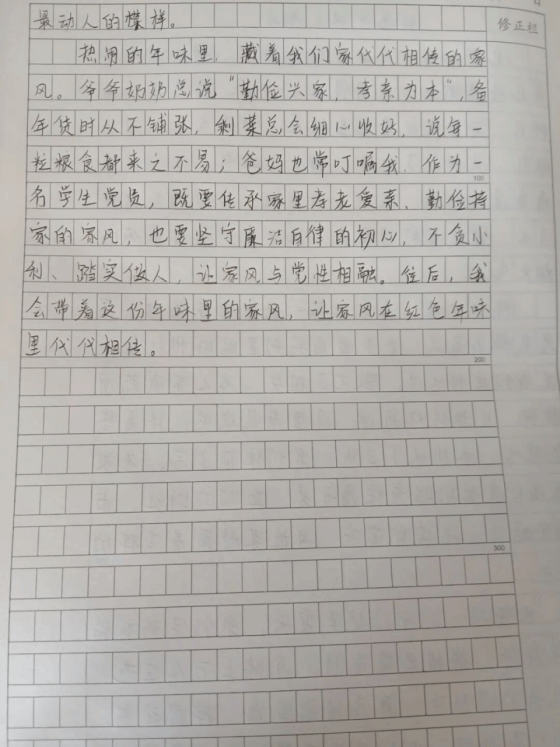 最动人的模样。
修正栏
热闹的年味里，藏着我们家代代相传的家
风。爷爷奶奶总说“勤俭兴家，孝亲为本”，备
年货时从不铺张，剩菜总会细心收好，说每一
粒粮食都来之不易；爸妈也常叮嘱我，作为一
100
名学生党员，既要传承家里孝老爱亲、勤俭持
家的家风，也要坚守廉洁自律的初心，不贪小
利、踏实做人，让家风与党性相融。往后，我
会带着这份年味里的家风，让家风在红色年味
里代代相传。
200
300